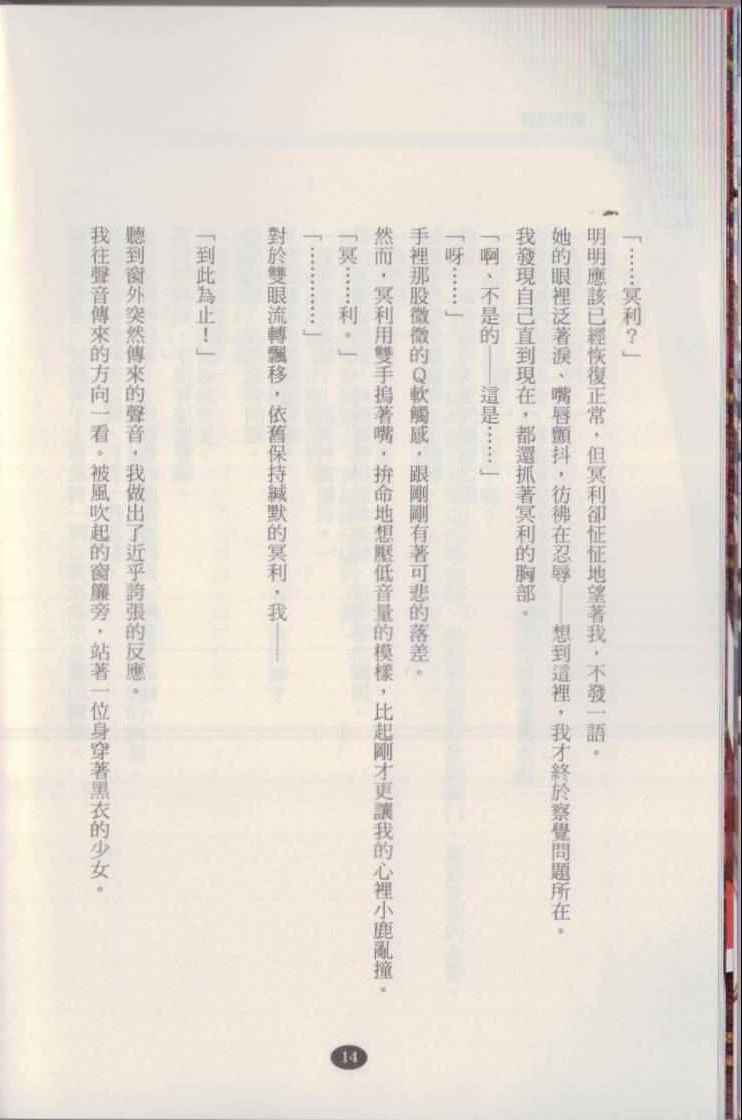 「……冥利？」
明明應該已經恢復正常，但冥利卻怔怔地望著我，不發一語。
她的眼裡泛著淚、嘴唇顫抖，彷彿在忍辱——想到這裡，我才終於察覺問題所在。
我發現自己直到現在，都還抓著冥利的胸部。
「啊、不是的——這是……」
「呀……」
手裡那股微微的Ｑ軟觸感，跟剛剛有著可悲的落差。
然而，冥利用雙手摀著嘴，拚命地想壓低音量的模樣，比起剛才更讓我的心裡小鹿亂撞。
「冥……利。」
「…………」
對於雙眼流轉飄移，依舊保持緘默的冥利，我——
「到此為止！」
聽到窗外突然傳來的聲音，我做出了近乎誇張的反應。
我往聲音傳來的方向一看。被風吹起的窗簾旁，站著一位身穿著黑衣的少女。
14